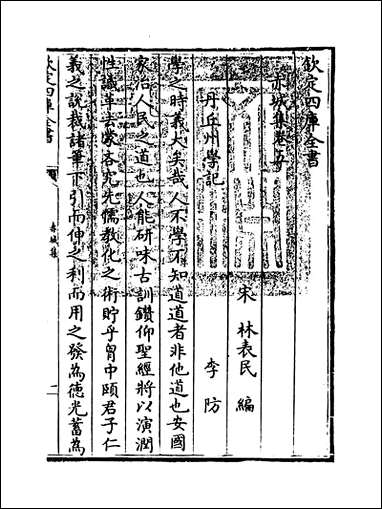 欽定四庫全書
赤城集卷五
宋 林表民 編
丹丘州學記
李防
學之時義大矣哉人不學不知道道者非他道也安國
家治人民之道也人能研味古訓鑽仰聖經將以演潤
性識革去蒙吝究先儒教化之術貯乎胷中頤君子仁
義之說裁諸筆下引而伸之利而用之發為徳光蓄為
欽定四庫全書
赤城集
一